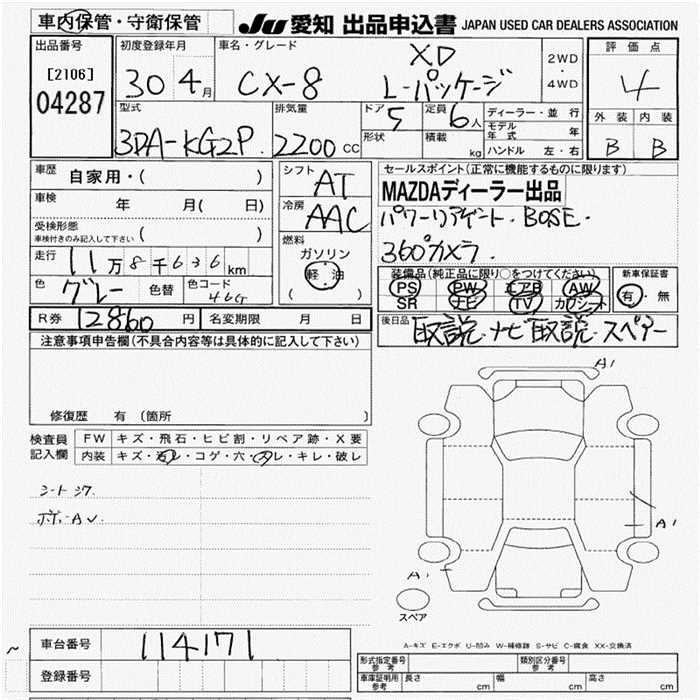 車内保管・守衛保管 JU 愛知 出品申込書 JAPAN USED CAR DEALERS ASSOCIATION
出品番号 初度登録年月 車名・グレード 評価点
[2106] 30 4月 CX-8 XD 2WD・4WD 4
04287 L-パッケージ
型式 排気量 ドア 5 定員 6人 ディーラー・並行 外装 内装
3DA-KG2P 2200CC 形状 積載 kg モデル年式 年 B B
ハンドル 左・右
車歴 自家用・( ) シフト AT セールスポイント(正常に機能するものに限ります)
車検 年 月( 日) 冷房 AAC MAZDAディーラー出品
受検形態 ( ) パワーリアゲート・BOSE・
車検付きのみ記入して下さい 燃料 360°カメラ
走行 11万8千636km ガソリン 装備品(純正品に限り○をつけてください) 新車保証書
色 グレー 色替 色コード 46G 軽・油 PS PW エアB AW 有・無
( ) SR ナビ TV カワシート
R券 12860円 名変期限 月 日 後日品 取説・ナビ取説・スペアー
注意事項申告欄(不具合内容等は具体的に記入して下さい)
A1
修復歴 有(箇所 )
検査員 FW キズ・飛石・ヒビ割・リペア跡・X要
記入欄 内装 キズ・汚レ・コゲ・穴・スレ・キレ・破レ
シートシワ
A1
A1
スペア
A-キズ E-エクボ U-凹み W-補修跡 S-サビ C-腐食 XX-交換済
車台番号 114171
登録番号 形式指定番号 参考 類別区分番号 参考
車庫証明用 参考 長さ cm 幅 cm 高さ cm